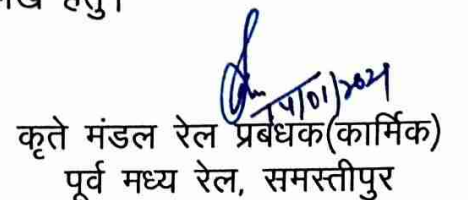 हेतु।
14/01/2021
कृते मंडल रेल प्रबंधक(कार्मिक)
पूर्व मध्य रेल, समस्तीपुर